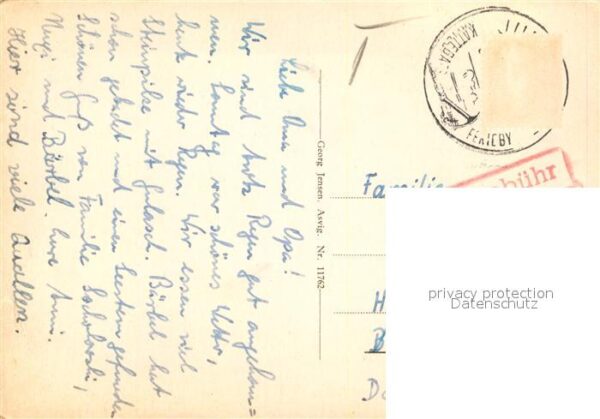 Liebe Oma und Opa!
Wir sind trotz Regen gut angekom=
men. Sonntag war schönes Wetter,
heute wieder Regen. Wir essen viel
Steinpilze mit Gulasch. Bärbel hat
schon gebadet und einen gefunden
Schönen Gruß von Familie
und Bärbel. Eure
Hier sind viele Quallen.
Georg Jensen, Asvig, Nr. 11762
FERIEBY
Familie
bühr
H
B
D
privacy protection
Datenschutz